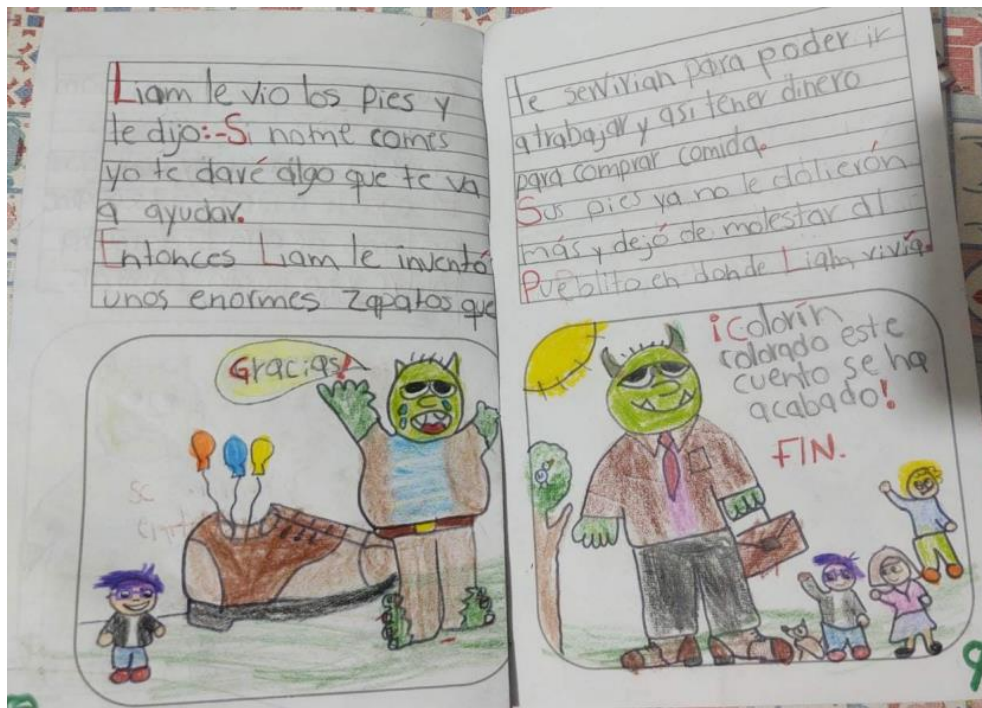 Liam le vio los pies y
le dijo:-Si nome comes
yo te daré algo que te va
a ayudar.
Entonces Liam le inventó
unos enormes zapatos que
Gracias!
te servirian para poder ir
a trabajar y asi tener dinero
para comprar comida.
Sus pies ya no le dolierón
más y dejó de molestar al
Pueblito en donde Liam vivía.
¡Colorín
colorado este
cuento se ha
acabado!
FIN.
9